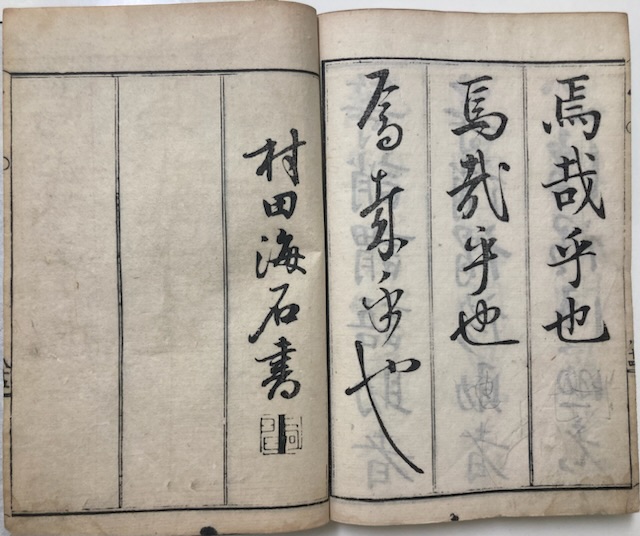 焉哉乎也
焉哉乎也
焉哉乎也
村田海石書